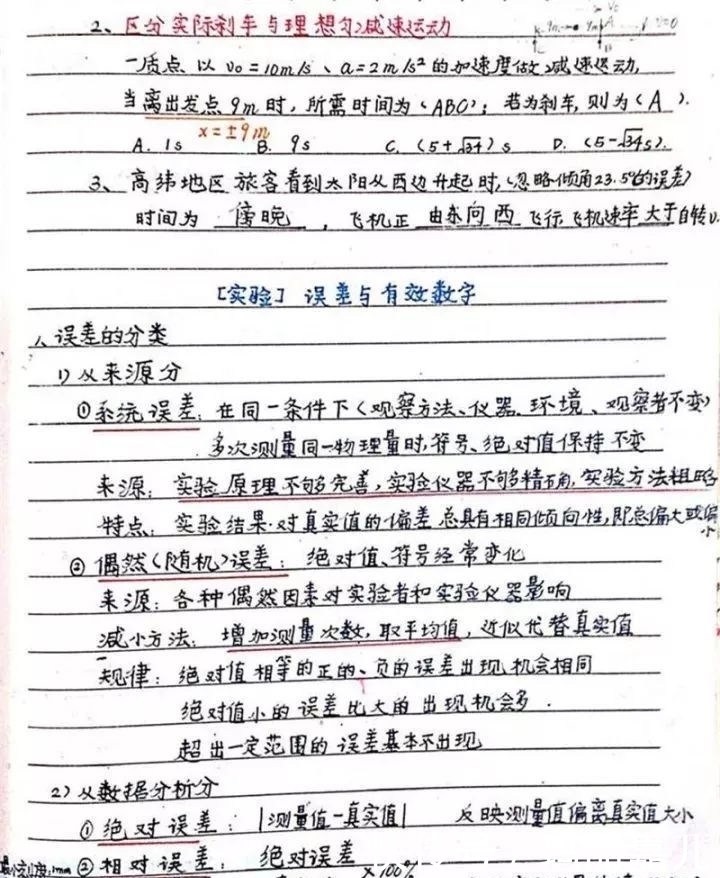 2、区分实际刹车与理想匀减速运动
一质点以v₀=10m/s、a=2m/s²的加速度做减速运动,
当离出发点9m时,所需时间为(ABC);若为刹车,则为(A).
x=±9m
A. 1s B. 9s C. (5+√34)s D. (5-√34s).
3、高纬地区旅客看到太阳从西边升起时,(忽略倾角23.5°的误差)
时间为 傍晚 ,飞机正 由东向西 飞行,飞机速率 大于自转
[实验] 误差与有效数字
误差的分类
1)从来源分
①系统误差:在同一条件下(观察方法、仪器、环境、观察者不变)
多次测量同一物理量时,符号、绝对值保持不变
来源:实验原理不够完善,实验仪器不够精确,实验方法粗略
特点:实验结果对真实值的偏差总具有相同倾向性,即总偏大或偏小
②偶然(随机)误差:绝对值、符号经常变化
来源:各种偶然因素对实验者和实验仪器影响
减小方法:增加测量次数,取平均值,近似代替真实值
规律:绝对值相等的正的、负的误差出现机会相同
绝对值小的误差比大的出现机会多.
超出一定范围的误差基本不出现
2)从数据分析分
①绝对误差:|测量值-真实值| 反映测量值偏离真实值大小
②相对误差:绝对误差
×100%